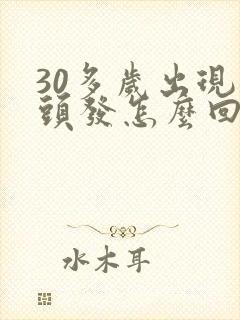 30多歲出現
頭發怎麼回
水木耳